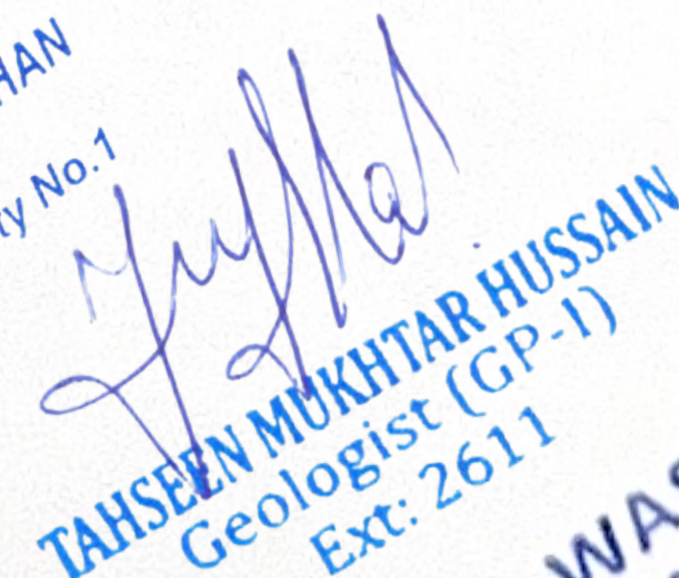 HAN
ty No.1
TAHSEEN MUKHTAR HUSSAIN
Geologist (GP-1)
Ext: 2611
WAS